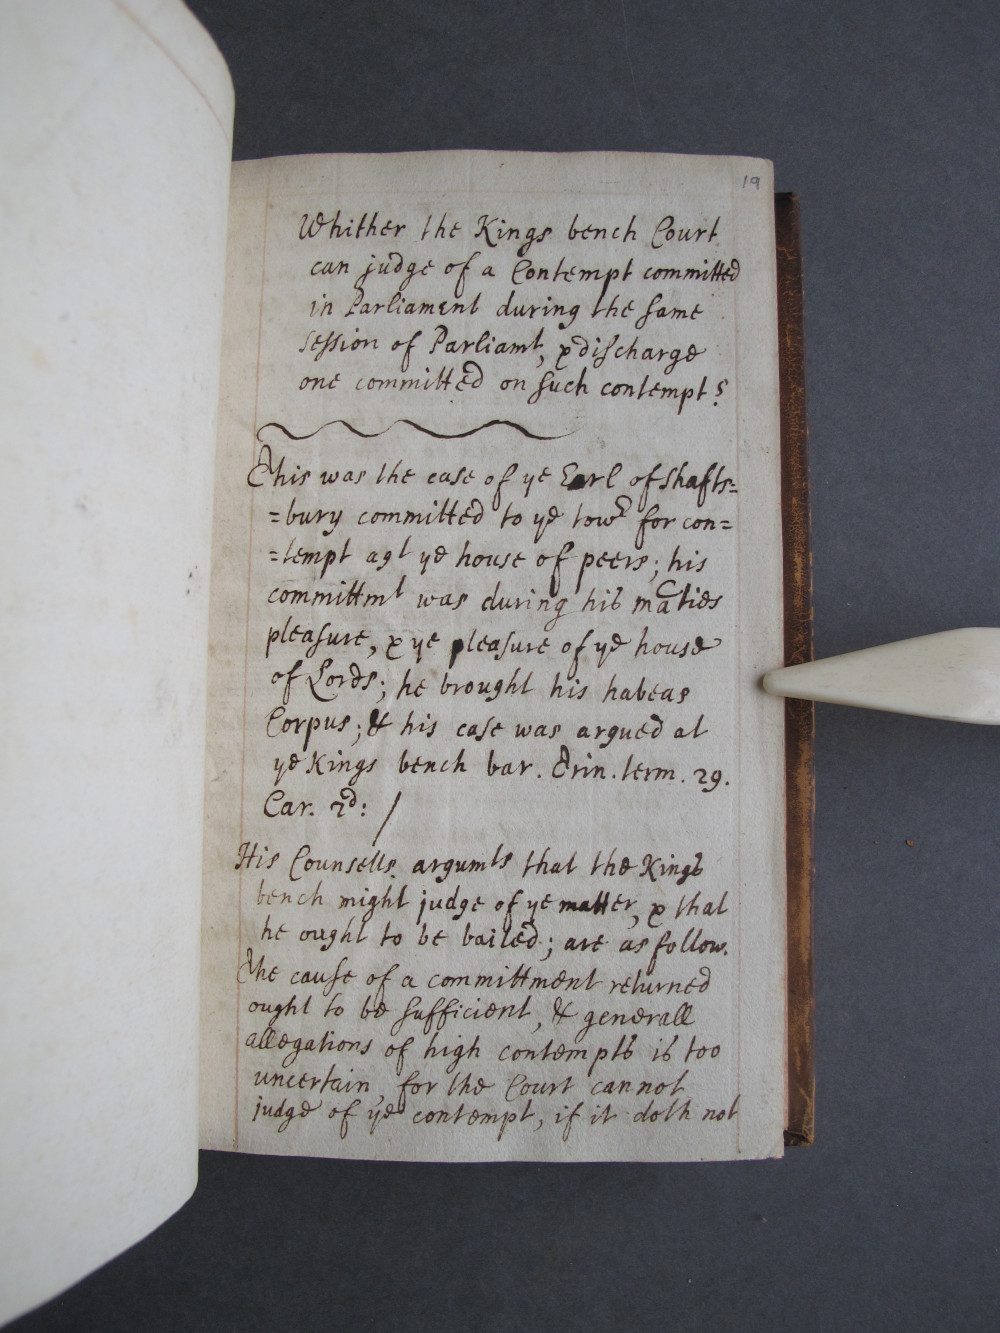 19
Whither the Kings bench Court
can judge of a Contempt committed
in Parliament during the same
session of Parliamt, & discharge
one committed on such contempt?
This was the case of ye Earl of Shafts=
=bury committed to ye towr for con=
=tempt agt ye house of peers; his
committmt was during his maties
pleasure, & ye pleasure of ye house
of Lords; he brought his habeas
Corpus; & his case was argued at
ye Kings bench bar. Trin. term. 29.
Car. 2d: /
His Counsells argumts that the Kings
bench might judge of ye matter, & that
he ought to be bailed; are as follow.
The cause of a committment returned
ought to be sufficient, & generall
allegations of high contempts is too
uncertain, for the Court cannot
judge of ye contempt, if it doth not